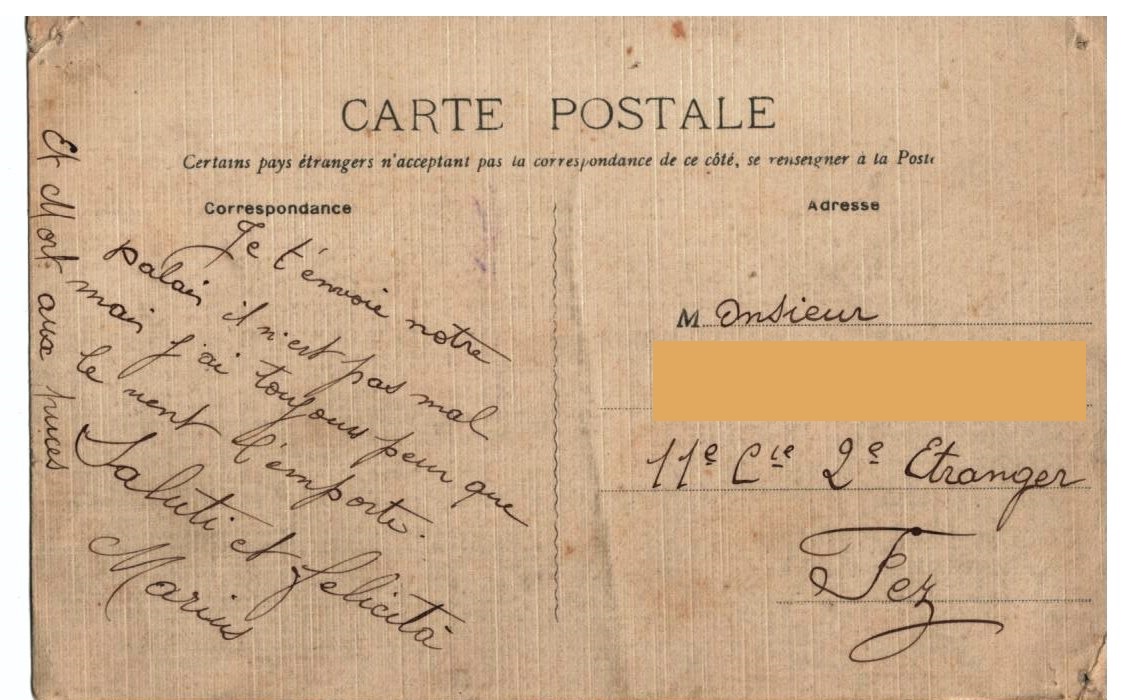 CARTE POSTALE
Certains pays étrangers n'acceptant pas la correspondance de ce côté, se renseigner à la Poste
Correspondance
Je t'envoie notre
palais il n'est pas mal
mais j'ai toujours peur que
le vent l'emporte.
Saluti et felicità
Marius
Et Mort aux puces
Adresse
Monsieur
11e Cie 2e Etranger
Fez